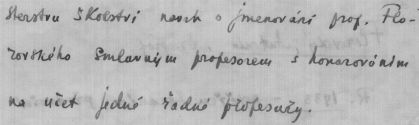 sterstvu školství návrh o jmenování prof. Flo-
rovského smluvním profesorem s honorováním
na účet jedné řádné profesury.